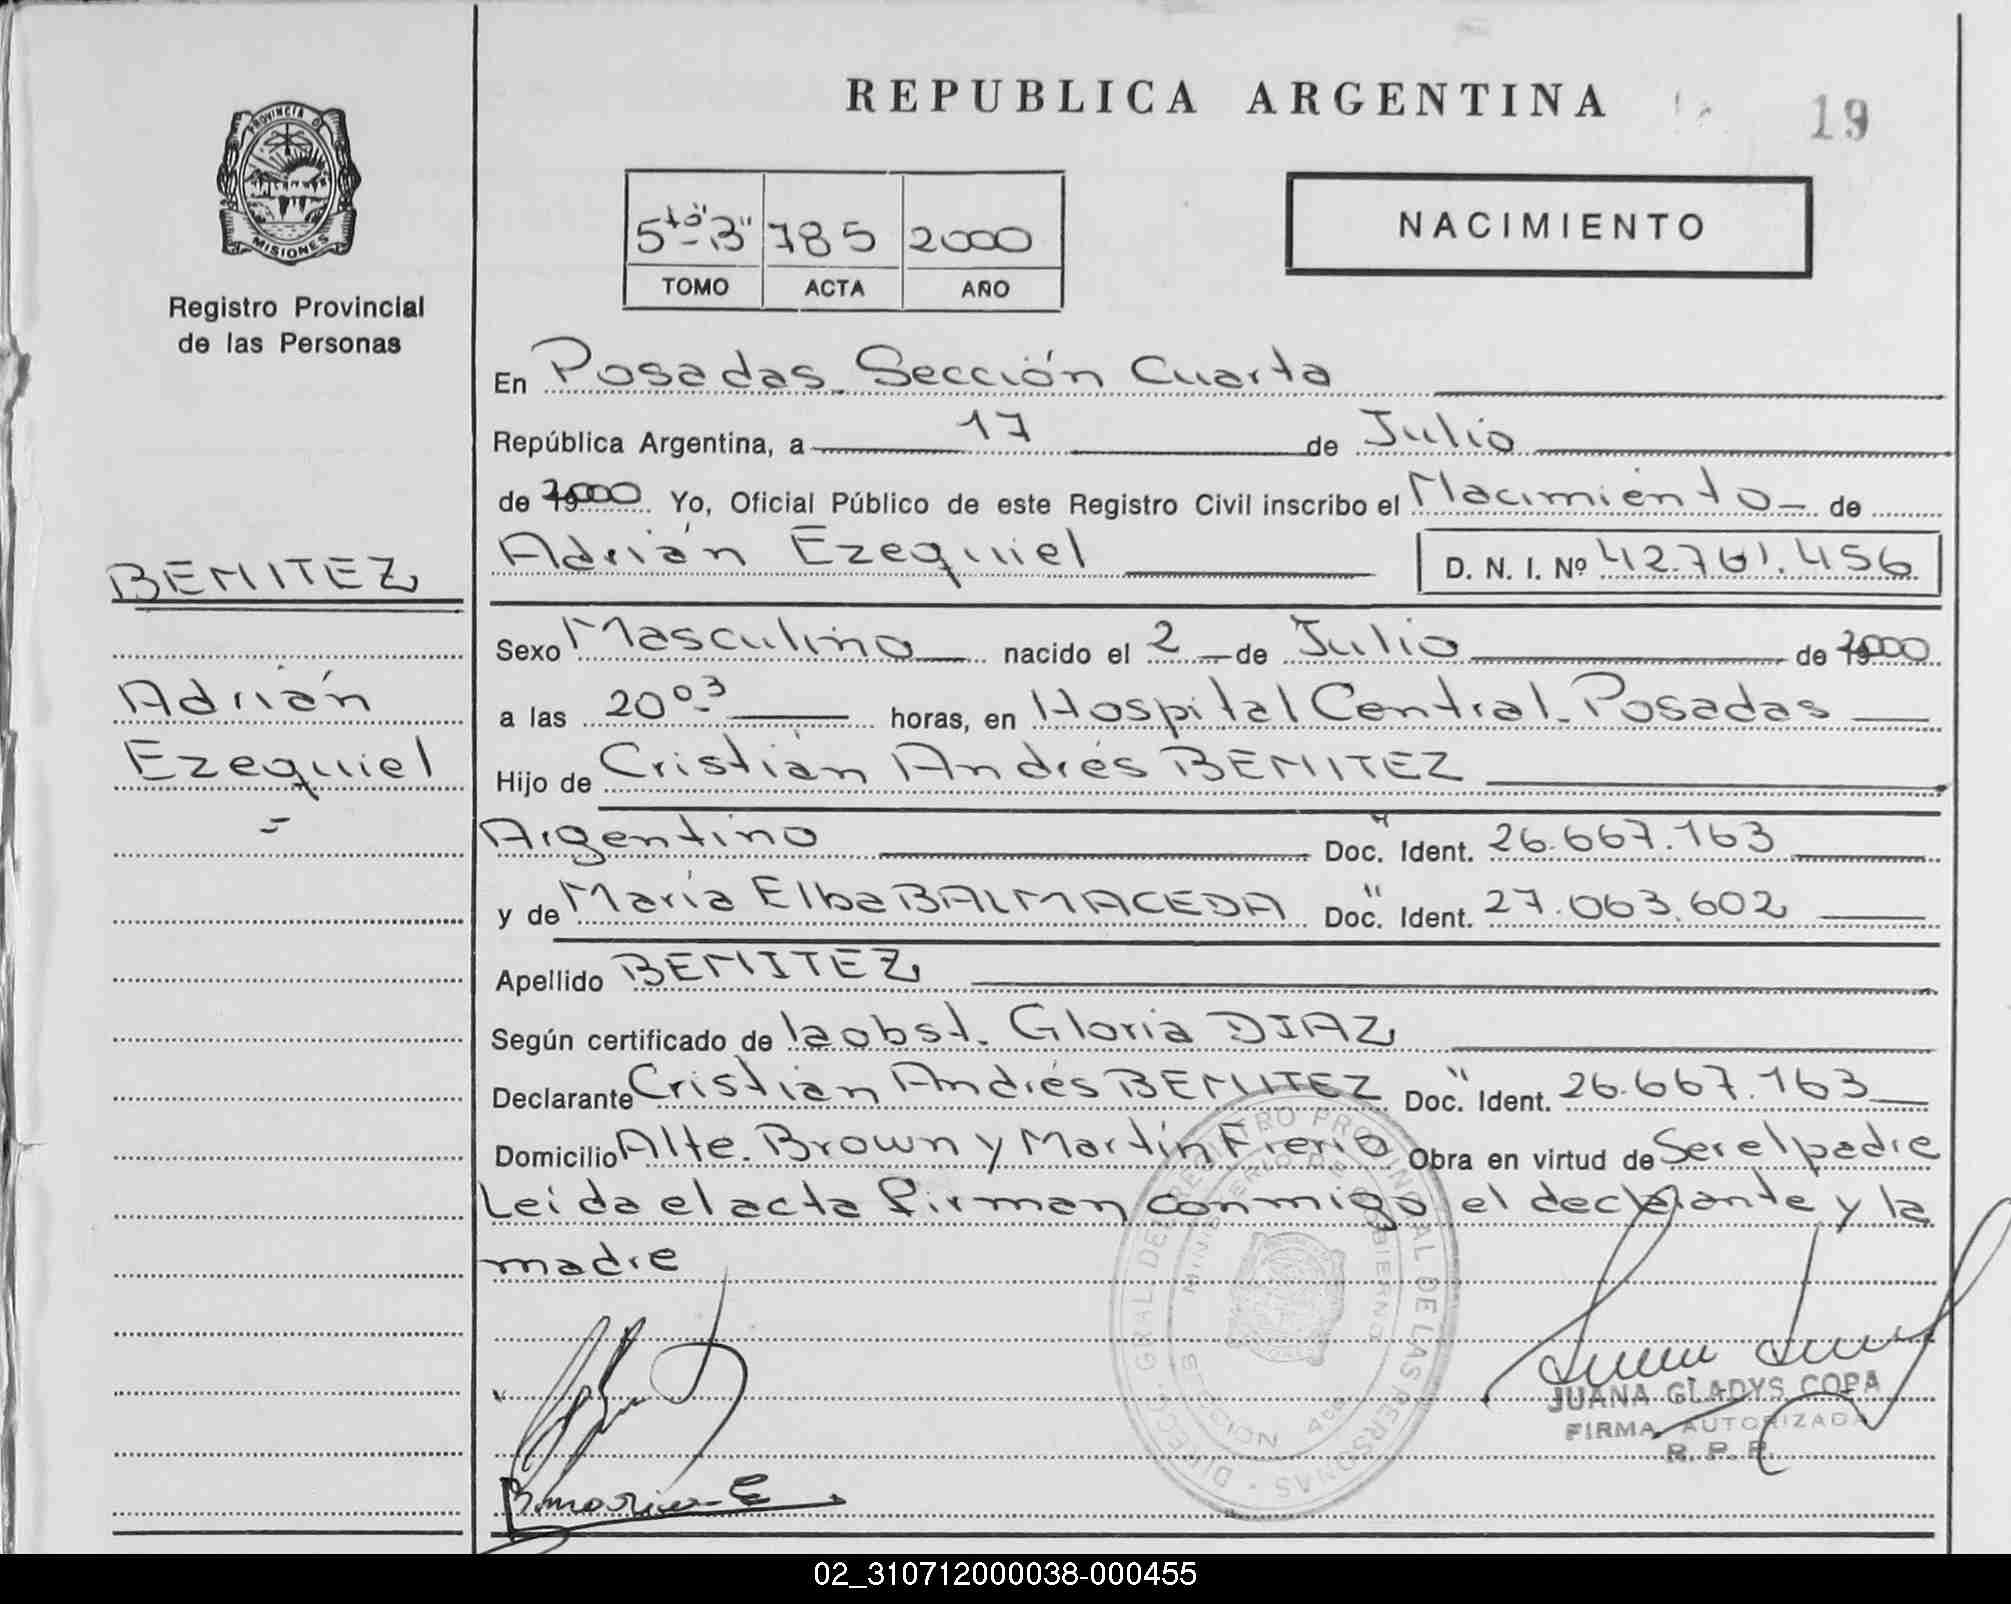 REPUBLICA ARGENTINA
19
PROVINCIA DE
MISIONES
Registro Provincial
de las Personas
5to "B" 785 2000
TOMO ACTA AÑO
NACIMIENTO
En Posadas Sección Cuarta
República Argentina, a 17 de Julio
de 2000 Yo, Oficial Público de este Registro Civil inscribo el Nacimiento de
Adrián Ezequiel D. N. I. Nº 42.761.456
BENITEZ
Adrián
Ezequiel
Sexo Masculino nacido el 2 de Julio de 2000
a las 20 03 horas, en Hospital Central Posadas
Hijo de Cristián Andrés BENITEZ
Argentino Doc. Ident. 26.667.163
y de María Elba BALMACEDA Doc. Ident. 27.063.602
Apellido BENITEZ
Según certificado de la obst. Gloria DIAZ
Declarante Cristián Andrés BENITEZ Doc. Ident. 26.667.163
Domicilio Alte. Brown y Martín Fierro Obra en virtud de Ser el padre
Leída el acta firman conmigo el declarante y la
madre
DIREC. GRAL. DEL REGISTRO PROVINCIAL DE LAS PERSONAS
MINISTERIO DE GOBIERNO
SECCION 4ta
JUANA GLADYS COPA
FIRMA AUTORIZADA
R. P. P.
02_310712000038-000455